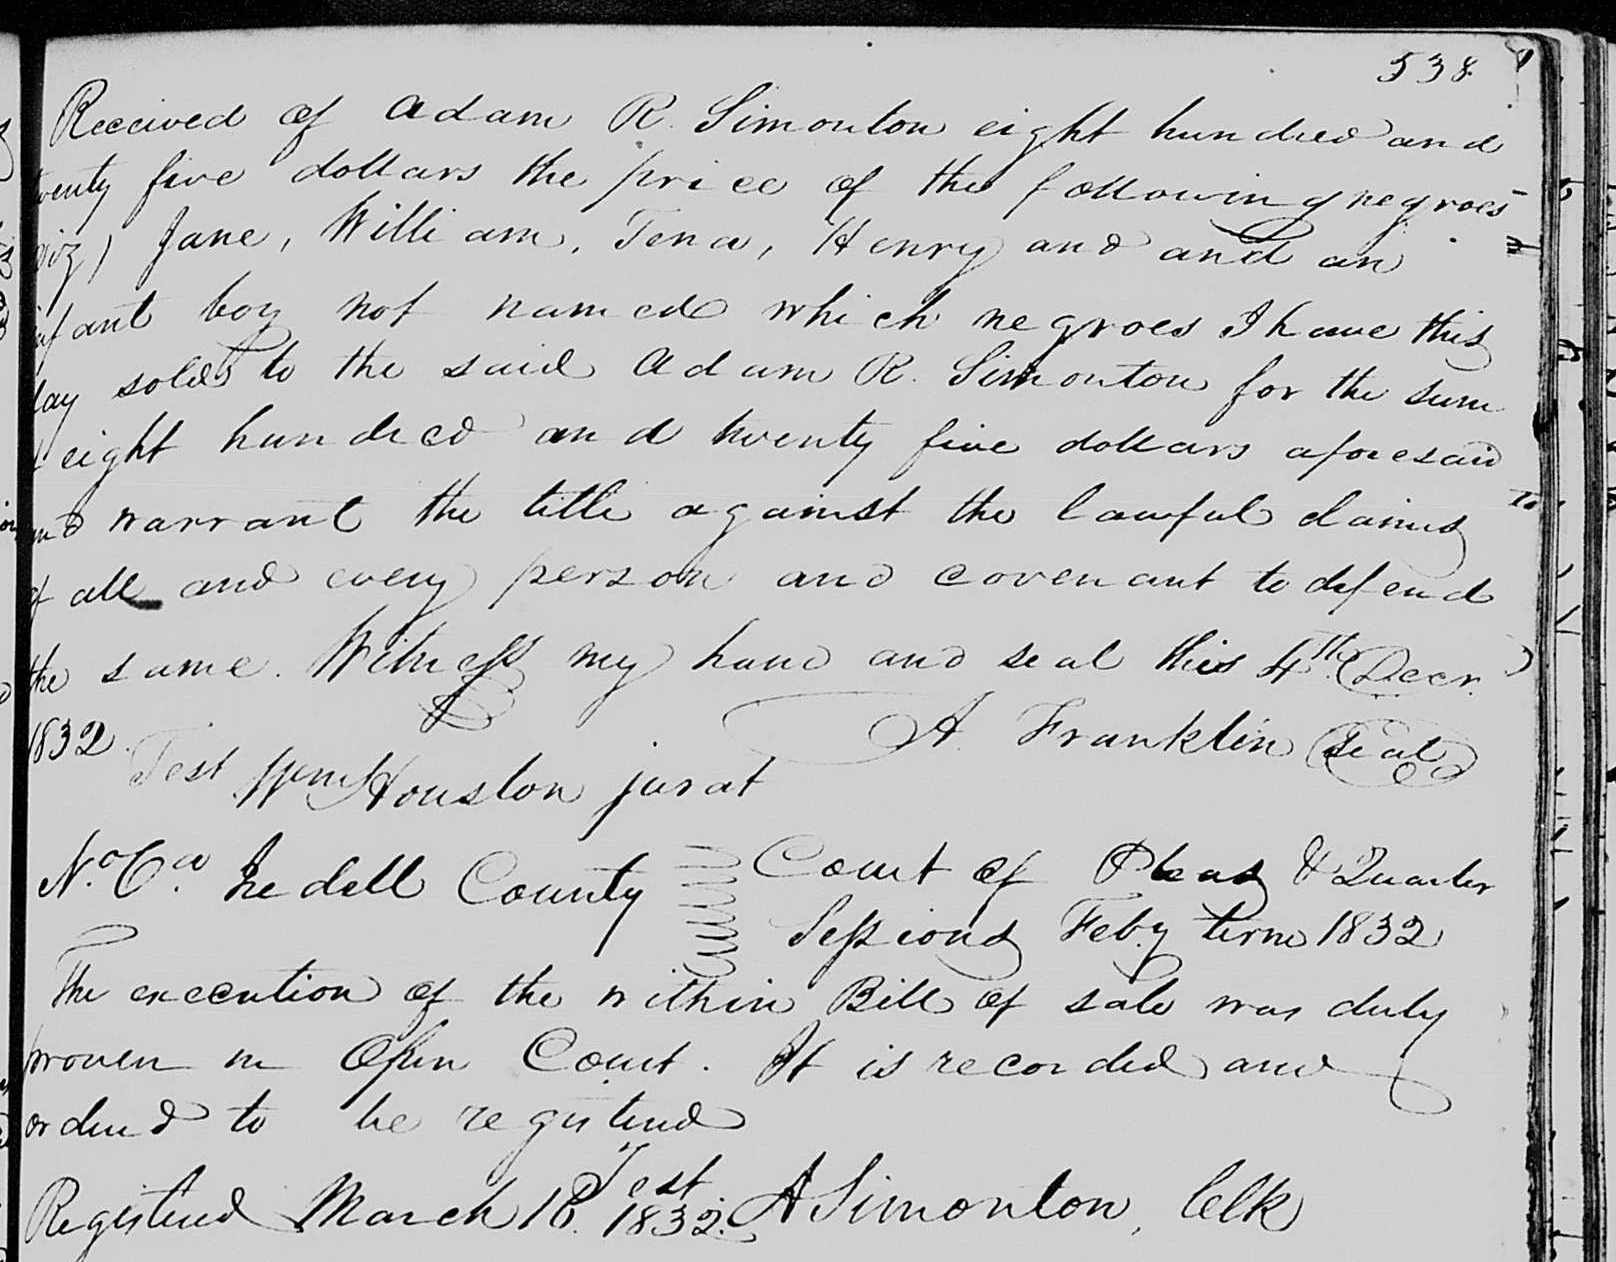 538
Received of Adam R. Simonton eight hundred and
twenty five dollars the price of the following negroes
viz) Jane, William, Tena, Henry and and an
infant boy not named which negroes I have this
day sold to the said Adam R. Simonton for the sum
of eight hundred and twenty five dollars aforesaid
and warrant the title against the lawful claims
of all and every person and covenant to defend
the same. Witness my hand and seal this 4th Decr.
1832.
A. Franklin Seal
Test Wm Houston jurat
No. Ca. Iredell County Court of Pleas & Quarter
Sessions Feby term 1832
The execution of the within Bill of sale was duly
proven in Open Court. It is recorded and
ordered to be registered
Test
Registered March 16. 1832. A Simonton, Clk